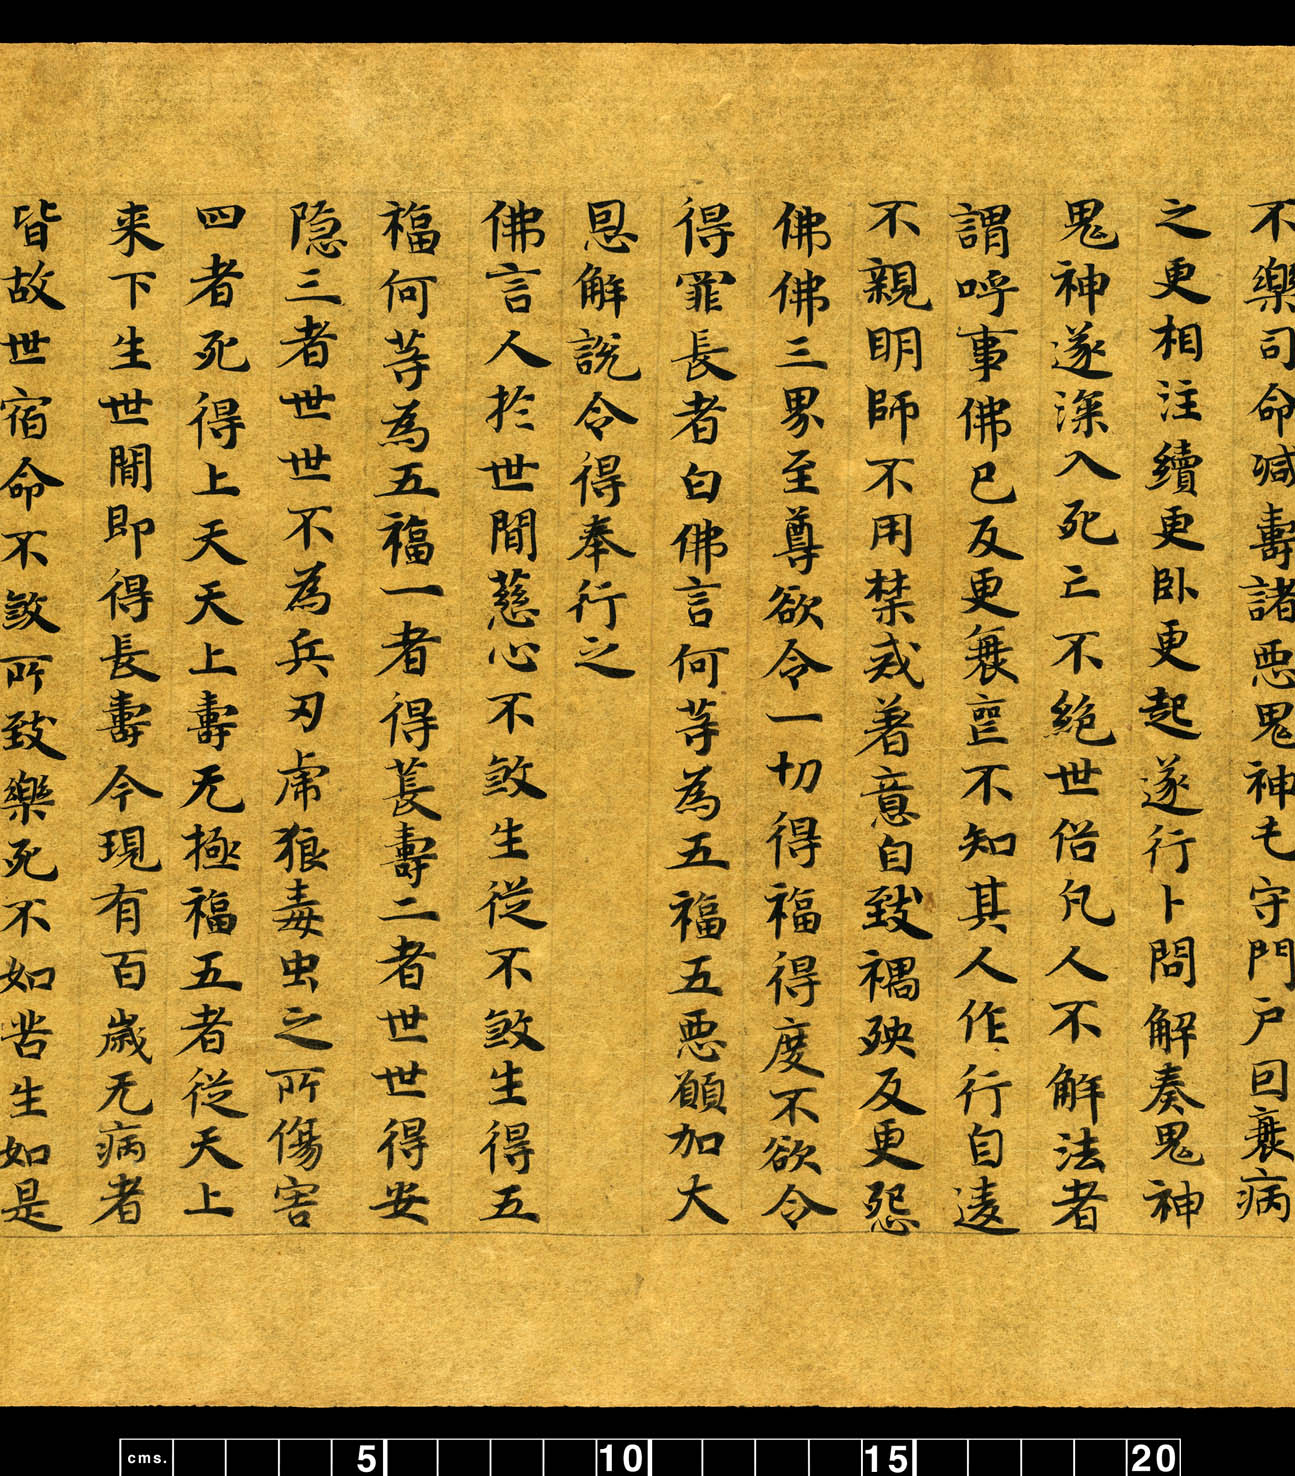 不樂司命減壽諸惡鬼神乇守門戶回衰病
之更相注續更卧更起遂行卜問解奏鬼神
鬼神遂深入死亡不絕世俗凡人不解法者
謂呼事佛已反更衰喪不知其人作行自違
不親明師不用禁戒著意自致禍殃反更怨
佛佛三界至尊欲令一切得福得度不欲令
得罪長者白佛言何等為五福五惡願加大
恩解說令得奉行之
佛言人於世間慈心不煞生從不煞生得五
福何等為五福一者得長壽二者世世得安
隐三者世世不為兵刃虎狼毒虫之所傷害
四者死得上天天上壽无極福五者從天上
来下生世間即得長壽今現有百歲无病者
皆故世宿命不煞所致樂死不如苦生如是
cms. 5 10 15 20